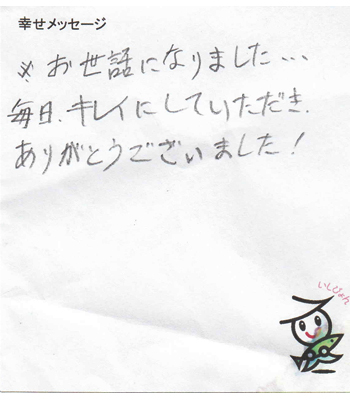 幸せメッセージ
※お世話になりました…
毎日、キレイにしていただき、
ありがとうございました!
いしぴょん